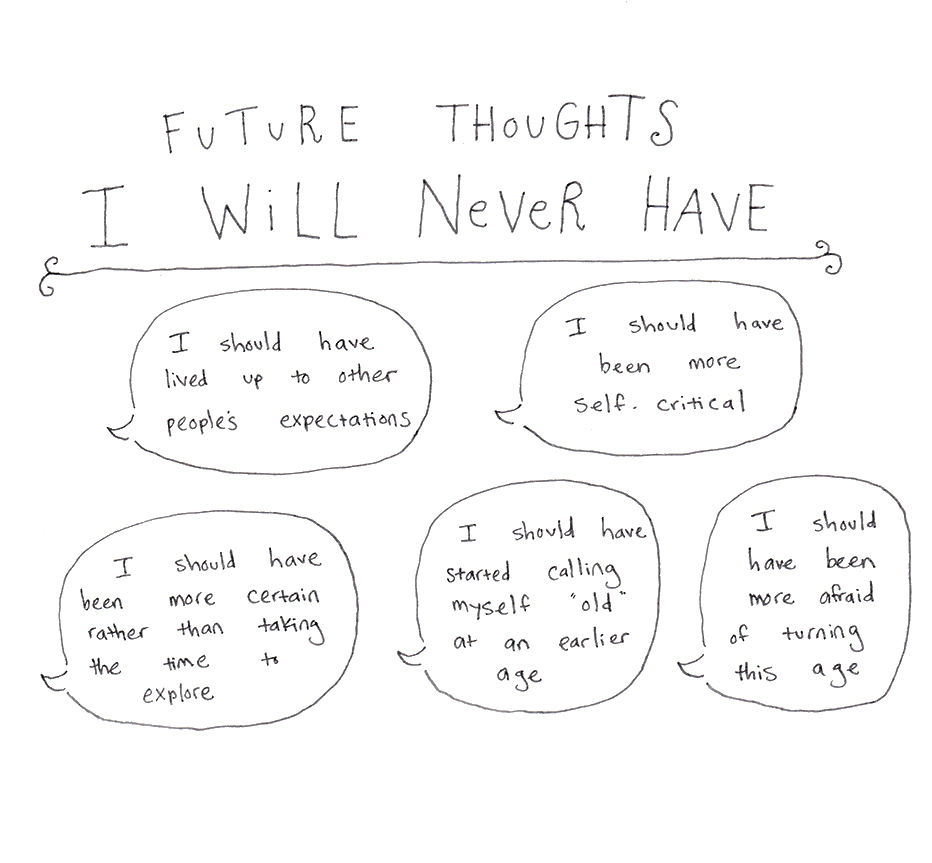 FUTURE THOUGHTS
I WiLL NeVeR HAVE
I should have
lived up to other
people's expectations
I should have
been more
self-critical
I should have
been more certain
rather than taking
the time to
explore
I should have
started calling
myself "old"
at an earlier
age
I should
have been
more afraid
of turning
this age